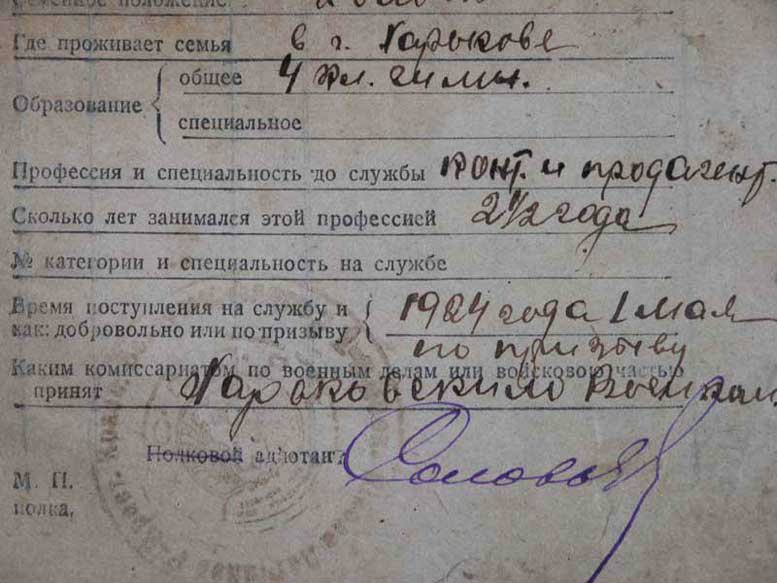 Семейное положение
Где проживает семья в г. Харькове
Образование { общее 4 кл. гимн.
специальное
Профессия и специальность до службы конт. и продагент.
Сколько лет занимался этой профессией 2 1/2 года
№ категории и специальность на службе
Время поступления на службу и 1924 года 1 мая
как: добровольно или по призыву по призыву
Каким комиссариатом по военным делам или войсковою частью
принят Харьковским Военком
Полковой адъютант Соловьев
М. П.
полка,